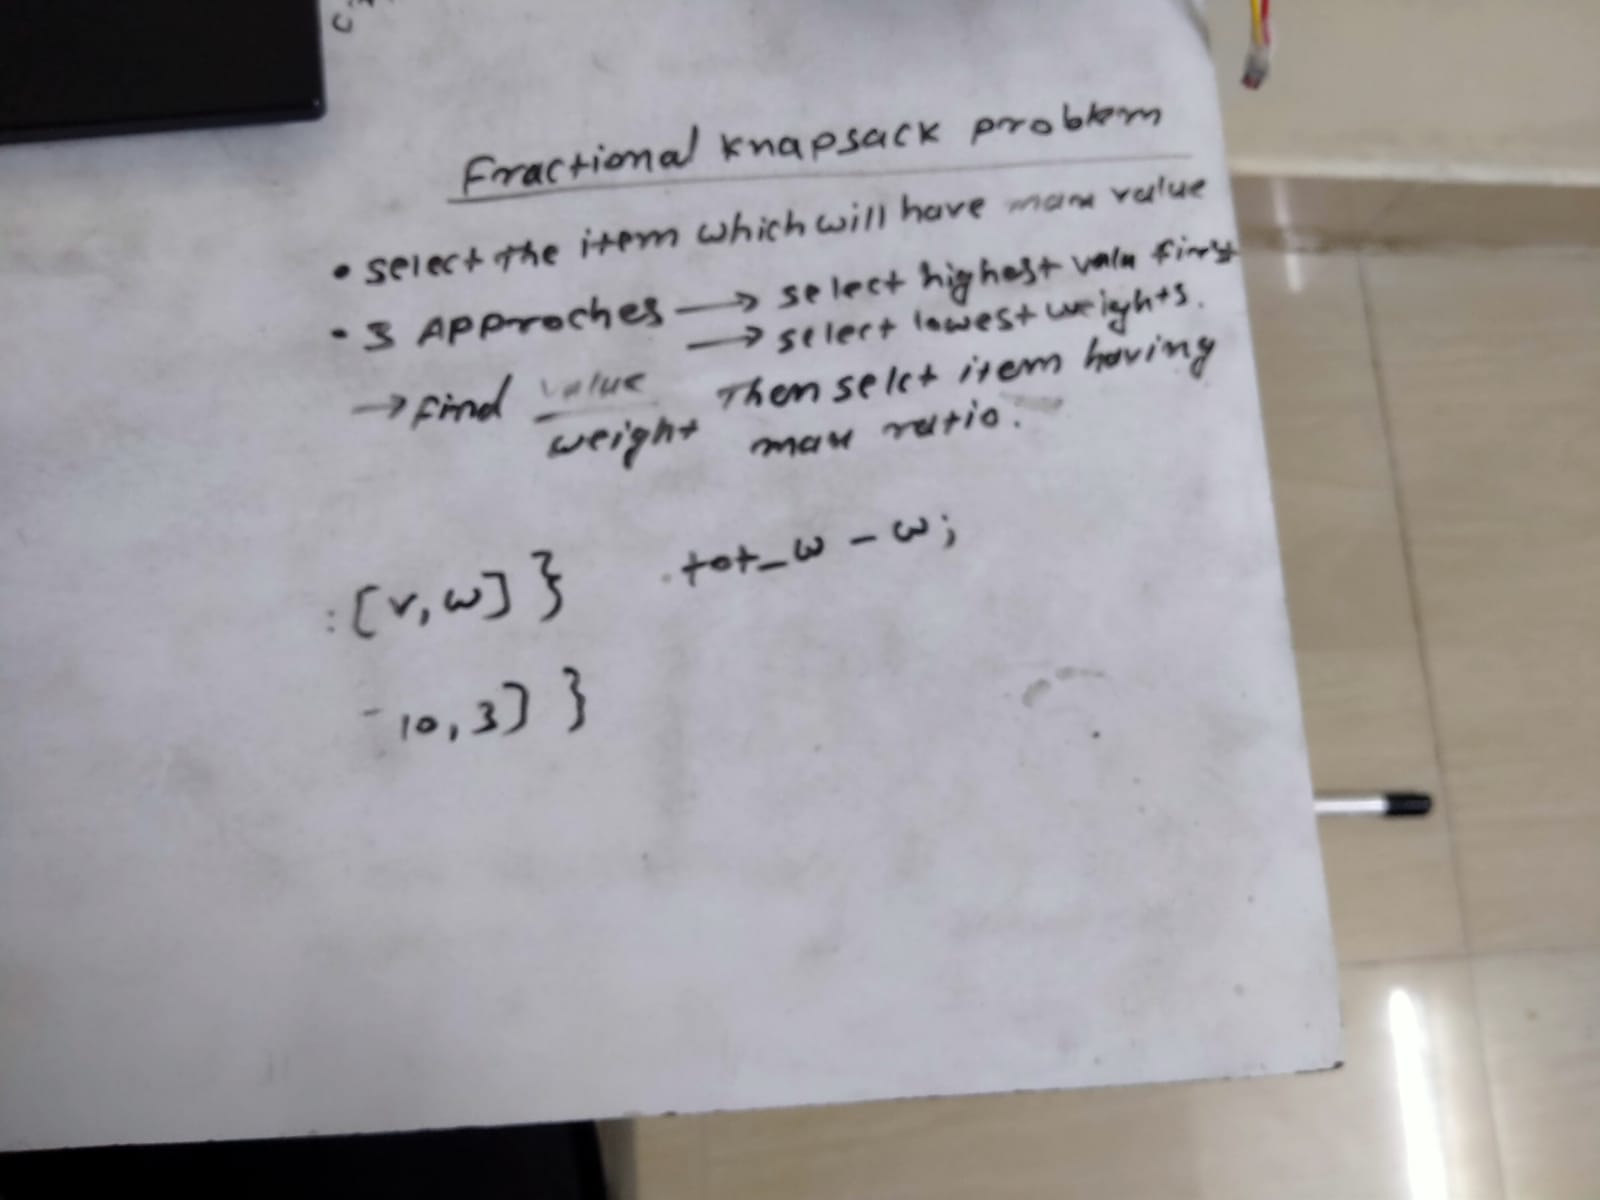 Fractional knapsack problem
• select the item which will have max value
• 3 Approches → select highest valu first
→ select lowest weights.
→ Find value / weight Then selct item having
max ratio.
: [v, w] } tot_w - w;
10, 3] }